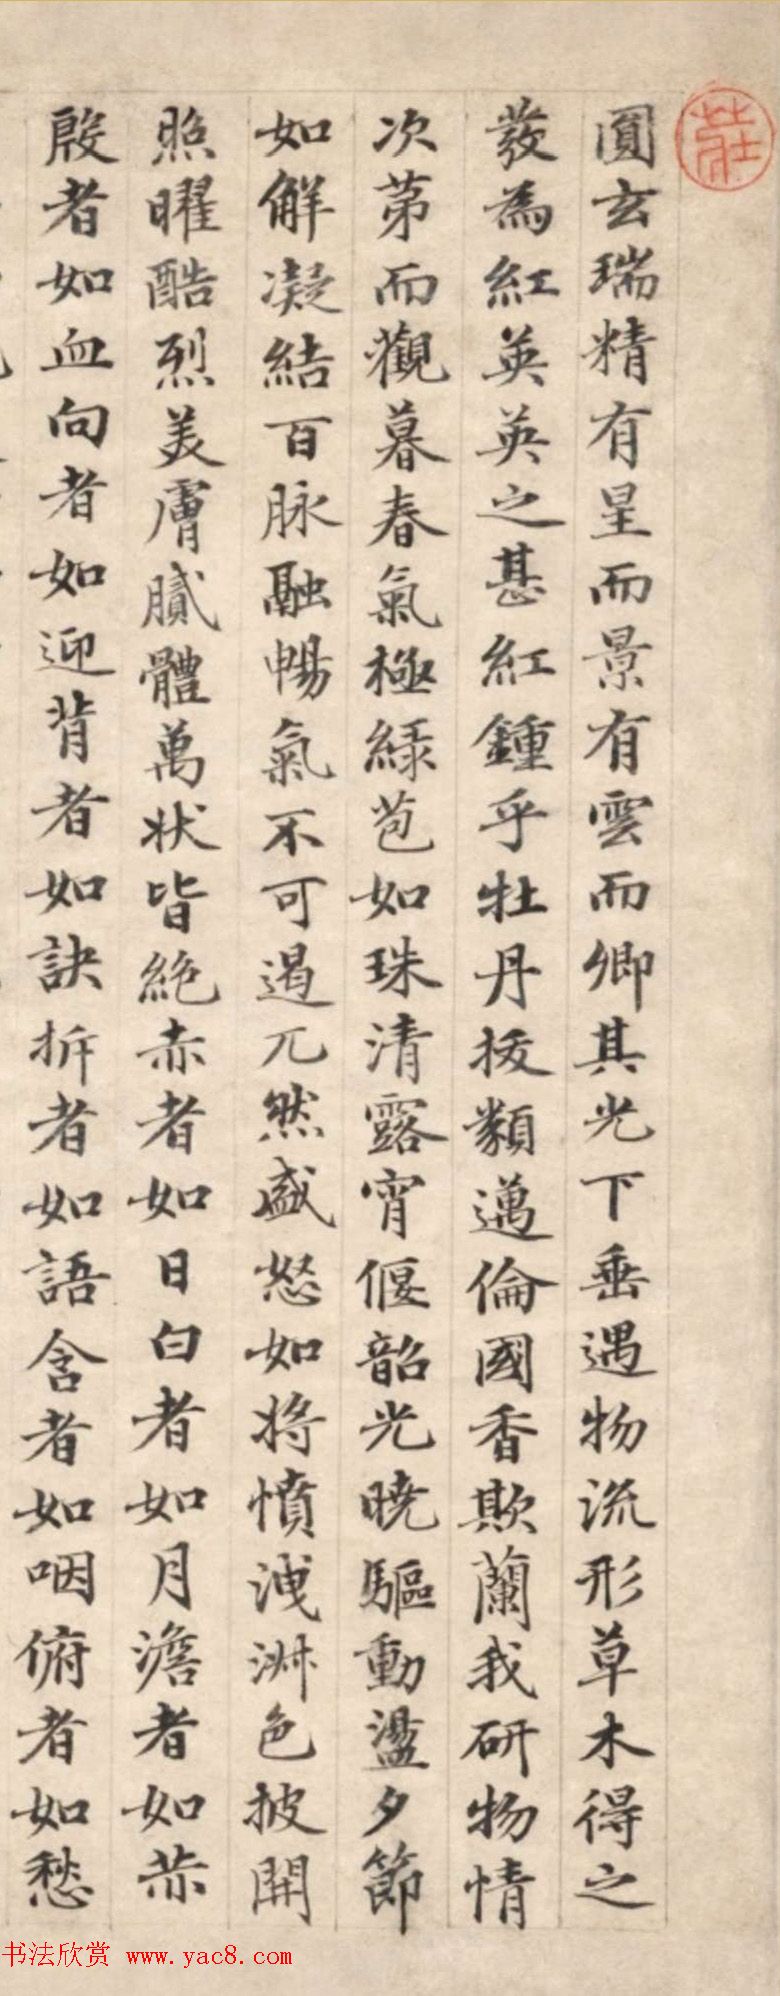 圓玄瑞精有星而景有雲而卿其光下垂遇物流形草木得之
發為紅英英之甚紅鍾乎牡丹拔類邁倫國香欺蘭我研物情
次苐而觀暮春氣極綠苞如珠清露宵偃韶光曉驅動盪夕節
如解凝結百脉融暢氣不可遏兀然盛怒如將憤洩淋色披開
照曜酷烈美膚膩體萬狀皆絕赤者如日白者如月澹者如赤
殷者如血向者如迎背者如訣拆者如語含者如咽俯者如愁
书法欣赏 www.yac8.com